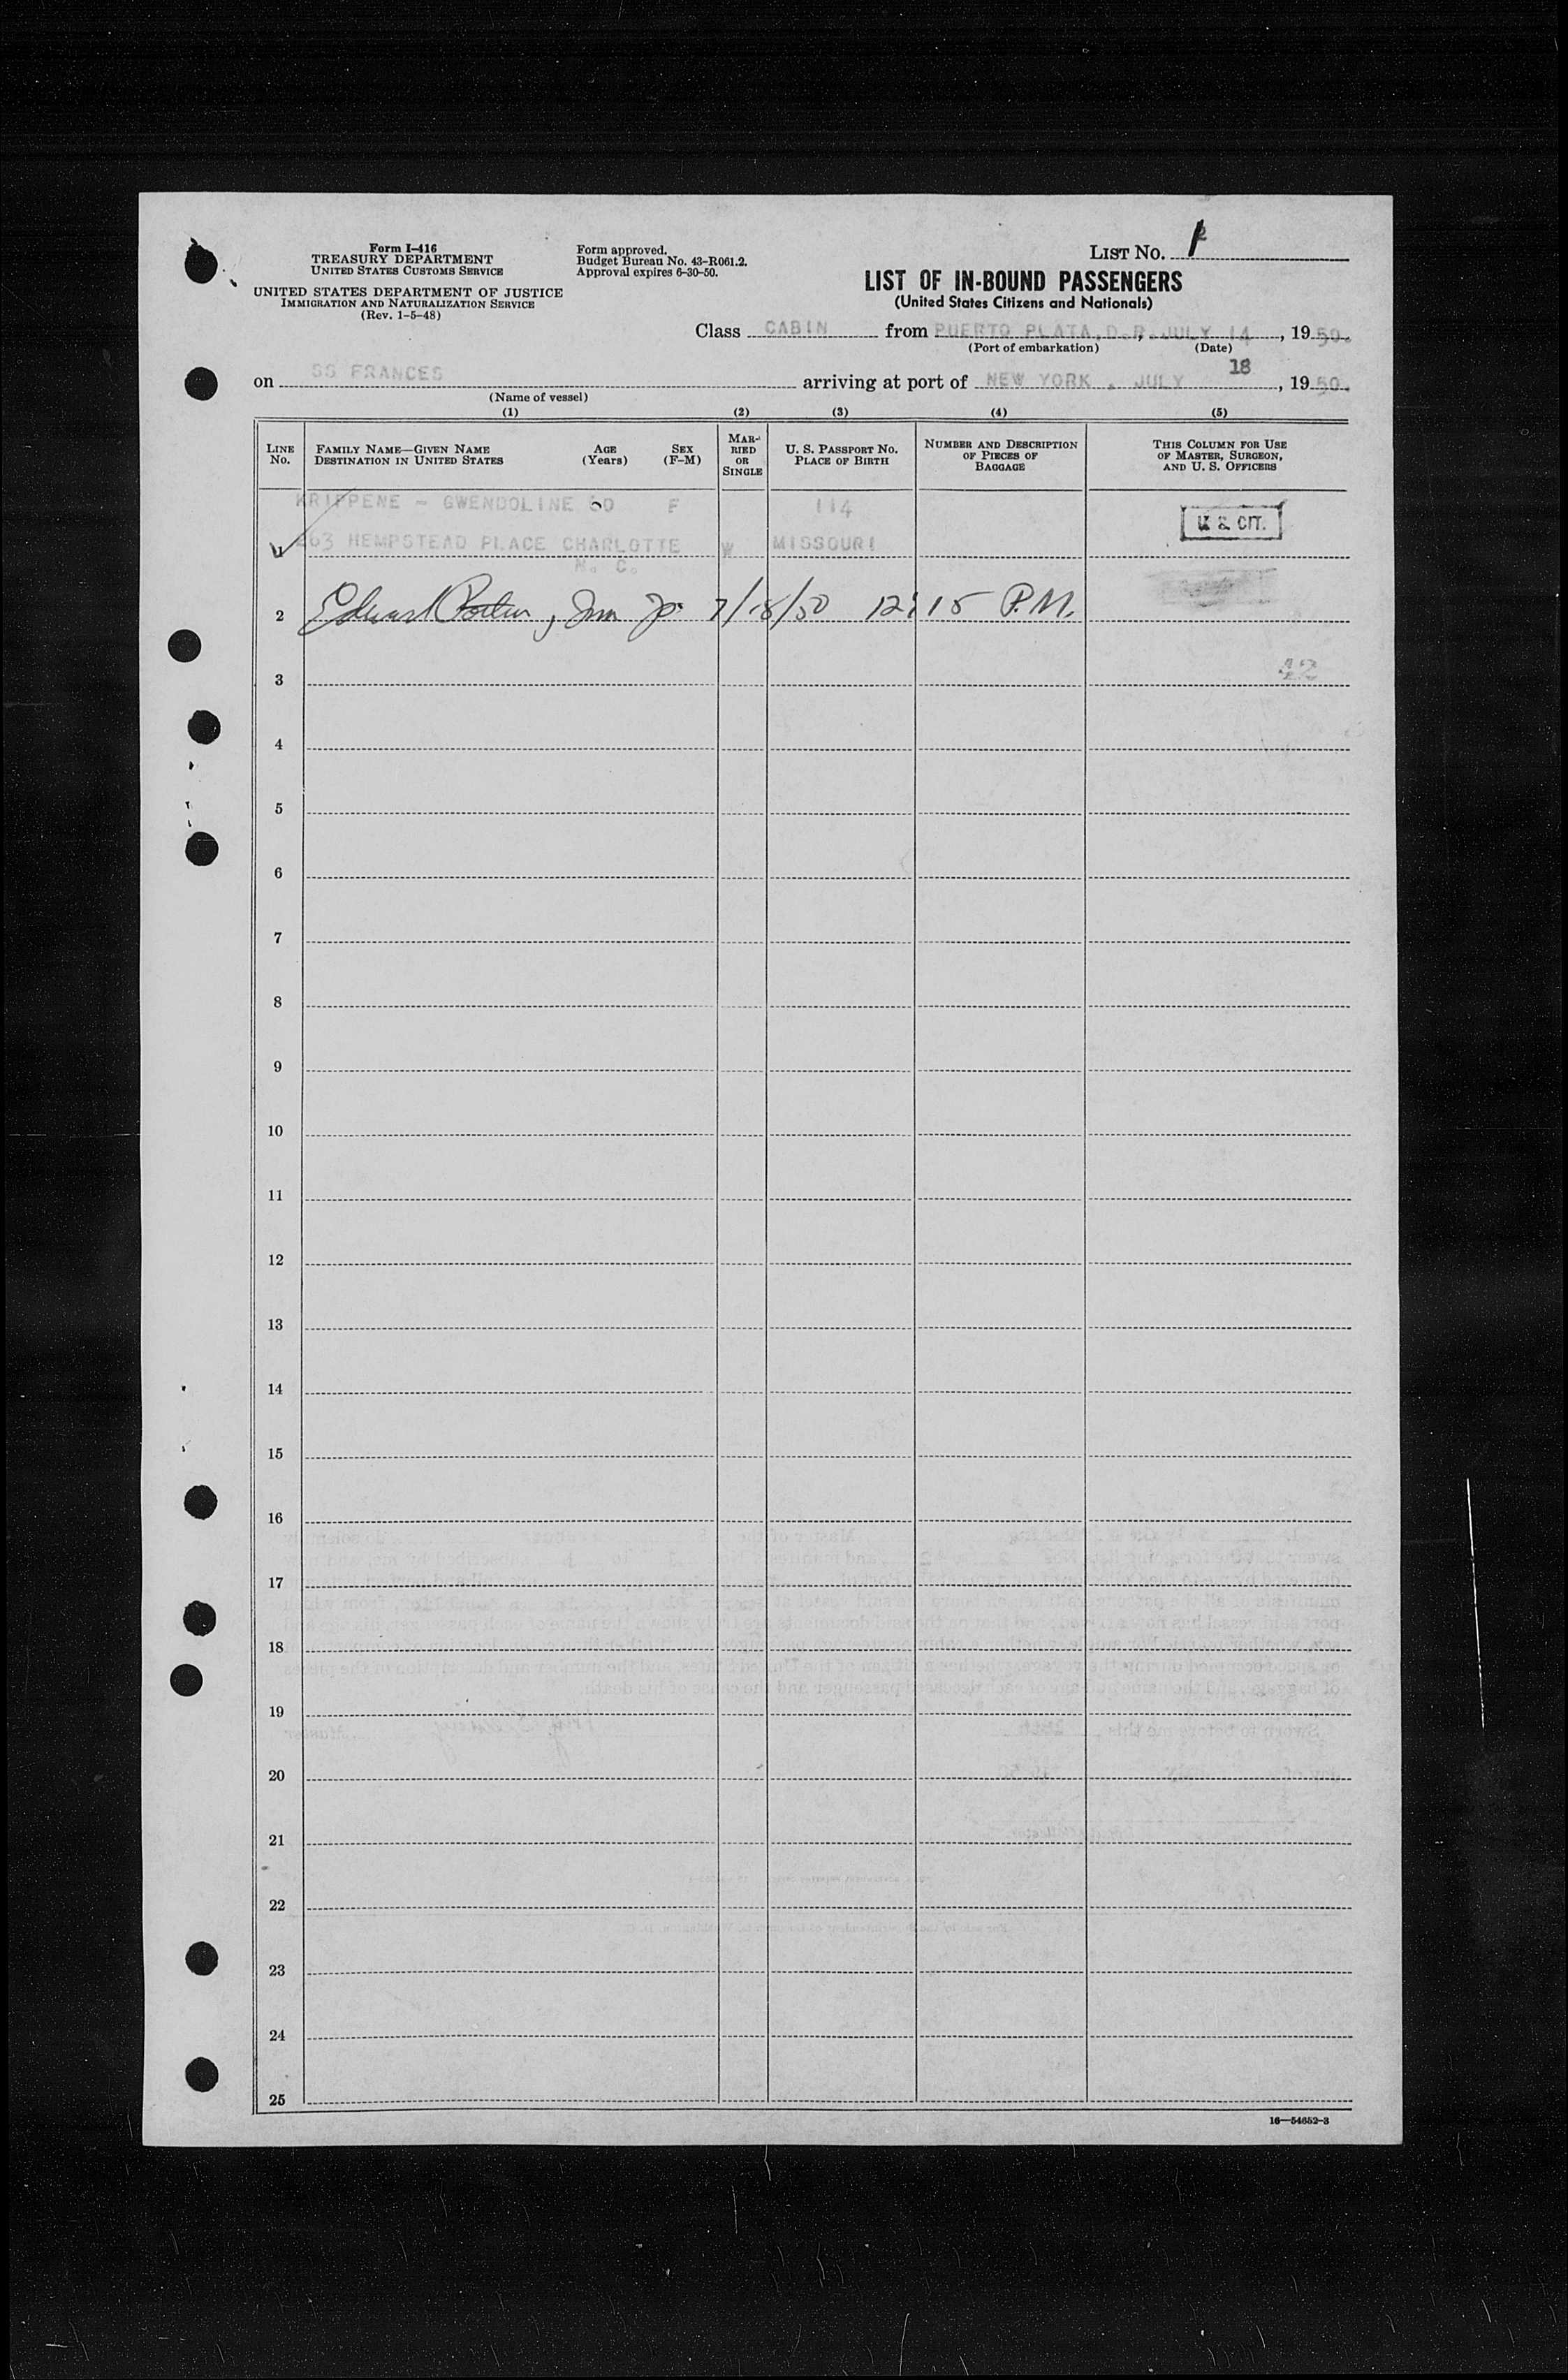 Form I-416
TREASURY DEPARTMENT
UNITED STATES CUSTOMS SERVICE
UNITED STATES DEPARTMENT OF JUSTICE
IMMIGRATION AND NATURALIZATION SERVICE
(Rev. 1-5-48)
Form approved.
Budget Bureau No. 43-R061.2.
Approval expires 6-30-50.
LIST No.
LIST OF IN-BOUND PASSENGERS
(United States Citizens and Nationals)
Class CABIN from PUERTO PLATA, D.R. JULY 14, 1950.
(Port of embarkation) (Date)
on SS FRANCES arriving at port of NEW YORK, JULY 18, 1950.
(Name of vessel)
(1) (2) (3) (4) (5)
LINE No.
FAMILY NAME—GIVEN NAME AGE (Years) SEX (F-M)
DESTINATION IN UNITED STATES
MARRIED OR SINGLE
U. S. PASSPORT No.
PLACE OF BIRTH
NUMBER AND DESCRIPTION OF PIECES OF BAGGAGE
THIS COLUMN FOR USE OF MASTER, SURGEON, AND U. S. OFFICERS
KRIPPENE - GWENDOLINE F 114
U.S. CIT.
1 263 HEMPSTEAD PLACE CHARLOTTE W MISSOURI
N. C.
2 Edward 7/18/50 12:15 P.M.
3
4
5
6
7
8
9
10
11
12
13
14
15
16
17
18
19
20
21
22
23
24
25
16—54652-3